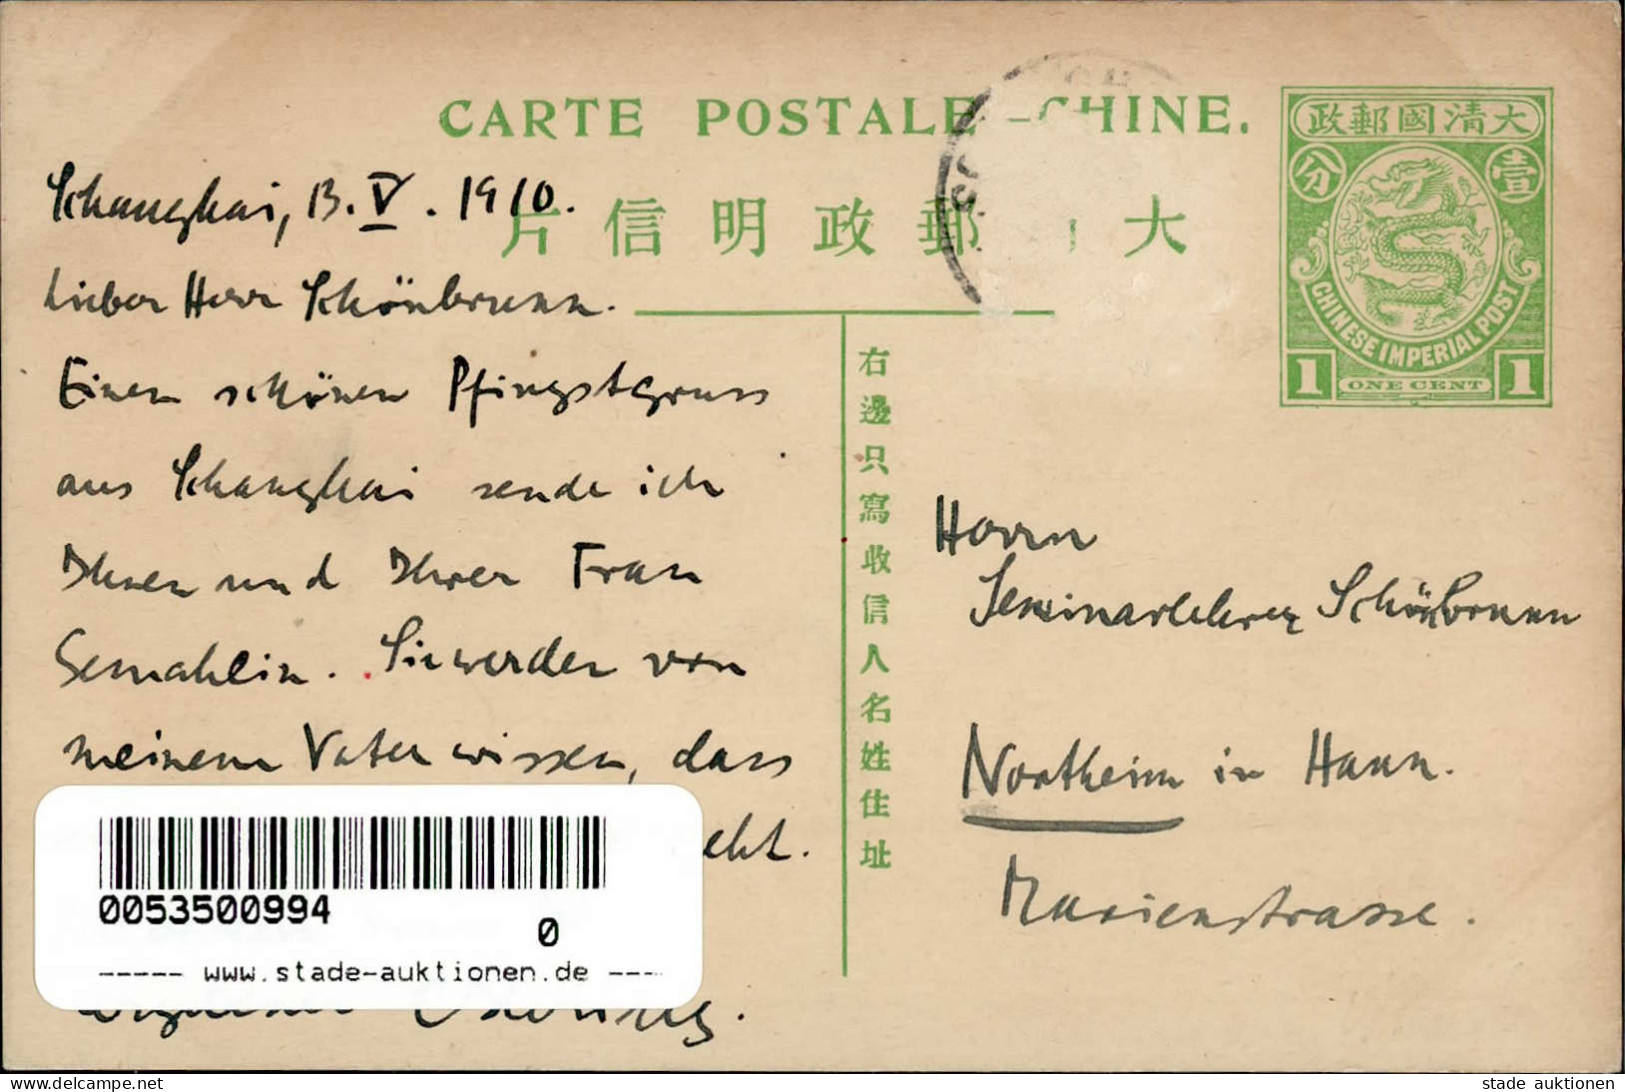 CARTE POSTALE - CHINE.
政郵國清大
分 壹
CHINESE IMPERIAL POST
1 ONE CENT 1
片信明政郵 大
Schanghai, 13. V. 1910.
Lieber Herr Schönbrunn.
Einen schönen Pfingstgruss
aus Schanghai sende ich
Ihnen und Ihrer Frau
Gemahlin. Sie werden von
meinem Vater wissen, dass
eht.
右邊只寫收信人名姓住址
Herrn
Seminarlehrer Schönbrunn
Northeim in Hann.
Marienstrasse.
0053500994
0
----- www.stade-auktionen.de ----
www.delcampe.net
stade auktionen